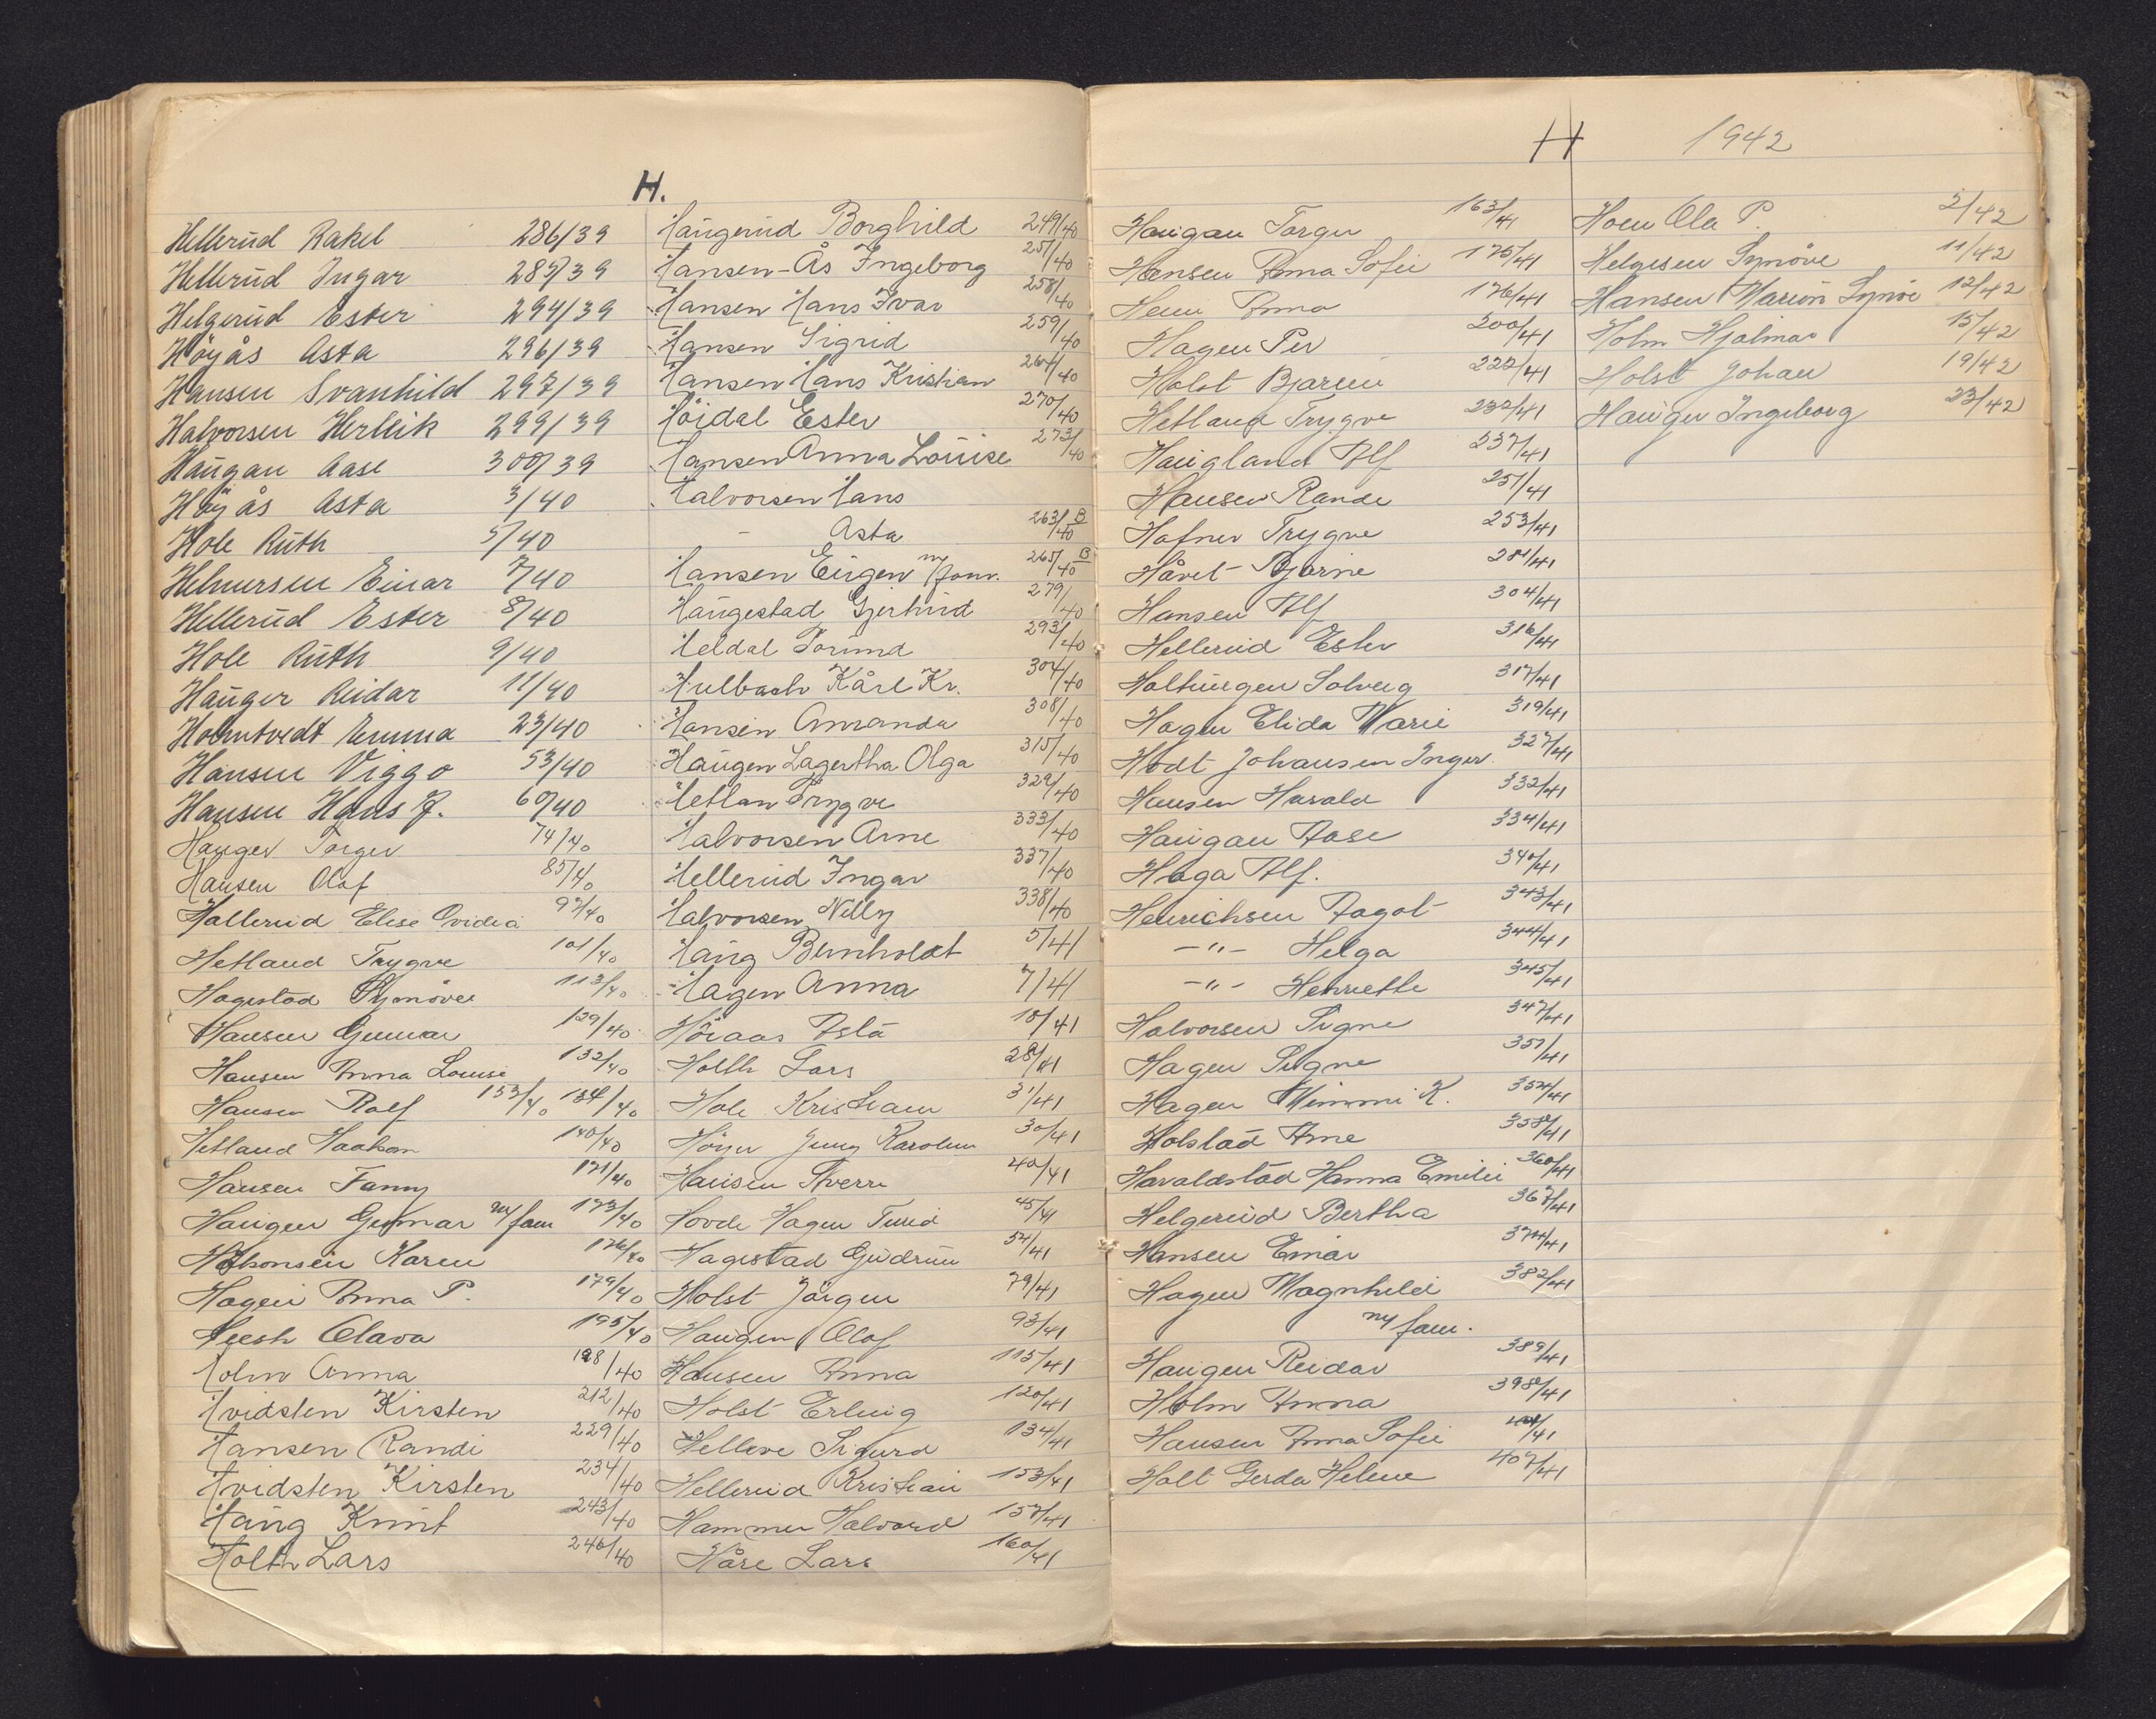 H.
Hellerud Rakel 286/39
Hellerud Ingar 287/39
Helgerud Ester 294/39
Höyås Asta 296/39
Hansen Svanhild 297/39
Halvorsen Herleik 299/39
Haugan Aase 300/39
Höyås Asta 3/40
Hole Ruth 5/40
Helmersen Einar 7/40
Hellerud Ester 8/40
Hole Ruth 9/40
Hauger Reidar 11/40
Holmtvedt Emma 23/40
Hansen Viggo 53/40
Hansen Hans J. 60/40
Hauger Torger 74/40
Hansen Olaf 85/40
Hallerud Elise Ovidia 97/40
Hetland Trygve 101/40
Hagestad Synöve 113/40
Hansen Gunnar 129/40
Hansen Anna Louise 132/40
Hansen Rolf 153/40 134/40
Hetland Haakon 140/40
Hansen Fanny 171/40
Haugen Gunnar m/fam 173/40
Haakonsen Karen 176/40
Hagen Anna P. 179/40
Olava 195/40
Holm Anna 198/40
Hvidsten Kirsten 212/40
Hansen Randi 229/40
Hvidsten Kirsten 234/40
Haug Knut 243/40
Holth Lars 246/40
Haugerud Borghild 249/40
Hansen-Ås Ingeborg 251/40
Hansen Hans Ivar 258/40
Hansen Sigrid 259/40
Hansen Hans Kristian 264/40
Höidal Ester 270/40
Hansen Anna Louise 273/40
Halvorsen Hans
- Asta 263/40 B
Hansen Eugen m/fam. 265/40 B
Haugestad Gjertrud 279/40
Heldal Torunn 293/40
Hulbach Kårl Kr. 304/40
Hansen Amanda 308/40
Haugen Lagertha Olga 315/40
Hetlan Trygve 329/40
Halvorsen Arne 333/40
Hellerud Ingar 337/40
Halvorsen Willy 338/40
Haug Bernholdt 5/41
Hagen Anna 7/41
Höiaas Asta 10/41
Holth Lars 28/41
Hole Kristian 31/41
Höyer Jenny Karoline 30/41
Hansen Sverre 40/41
Hovde Hagen Turid 45/41
Hagestad Gudrun 54/41
Holst Jörgen 79/41
Haugen Olaf 93/41
Hansen Anna 115/41
Holst Erling 120/41
Helleve Sigurd 134/41
Hellerud Kristian 153/41
Hammer Halvard 157/41
Håre Lars 160/41
H 1942
Haugan Torger 163/41
Hansen Anna Sofie 175/41
Hem Anna 176/41
Hagen Per 200/41
Holst Bjarne 222/41
Hetland Trygve 232/41
Haugland Alf 237/41
Hansen Rande 251/41
Hafner Trygve 253/41
Håvet Bjarne 281/41
Hansen Alf 304/41
Hellerud Ester 316/41
Solveig 317/41
Hagen Elida Marie 319/41
Hodt Johansen Inger 327/41
Hansen Harald 332/41
Haugan Aase 334/41
Haga Alf. 340/41
Henrichsen Aagot 343/41
-"- Helga 344/41
-"- Henriette 345/41
Halvorsen Signe 347/41
Hagen Signe 351/41
Hagen Mimmi K. 354/41
Holstad Arne 358/41
Haraldstad Hanna Emilie 360/41
Helgerud Bertha 367/41
Hansen Einar 374/41
Hagen Magnhild 382/41
m/fam.
Haugen Reidar 389/41
Holm Anna 398/41
Hansen Anna Sofie 401/41
Holt Gerda Helene 407/41
Hoen Ola P. 2/42
Helgesen Synöve 11/42
Hansen Marion Synöe 12/42
Holm Hjalmar 15/42
Holst Johan 19/42
Hauger Ingeborg 23/42